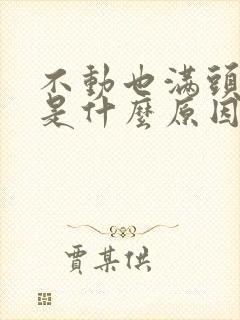 不動也滿頭
是什麼原因
賈某供